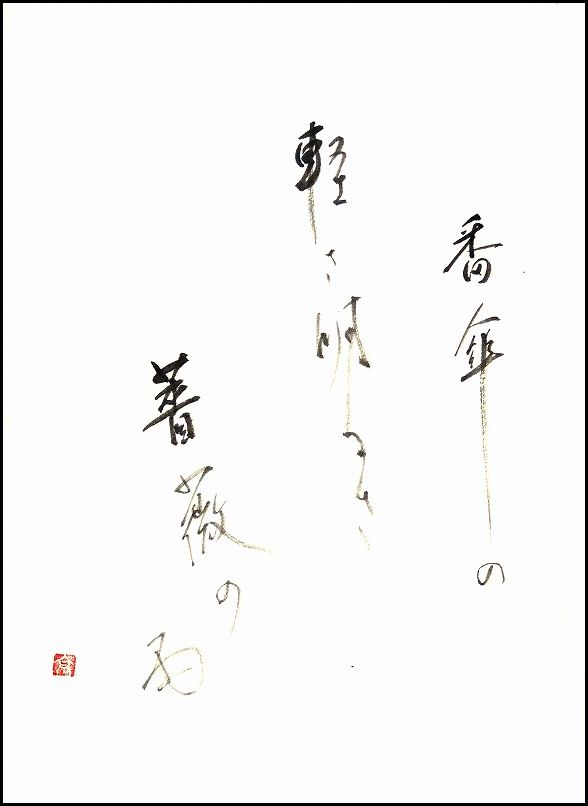 番傘の
軽さ明るさ
薔薇の雨